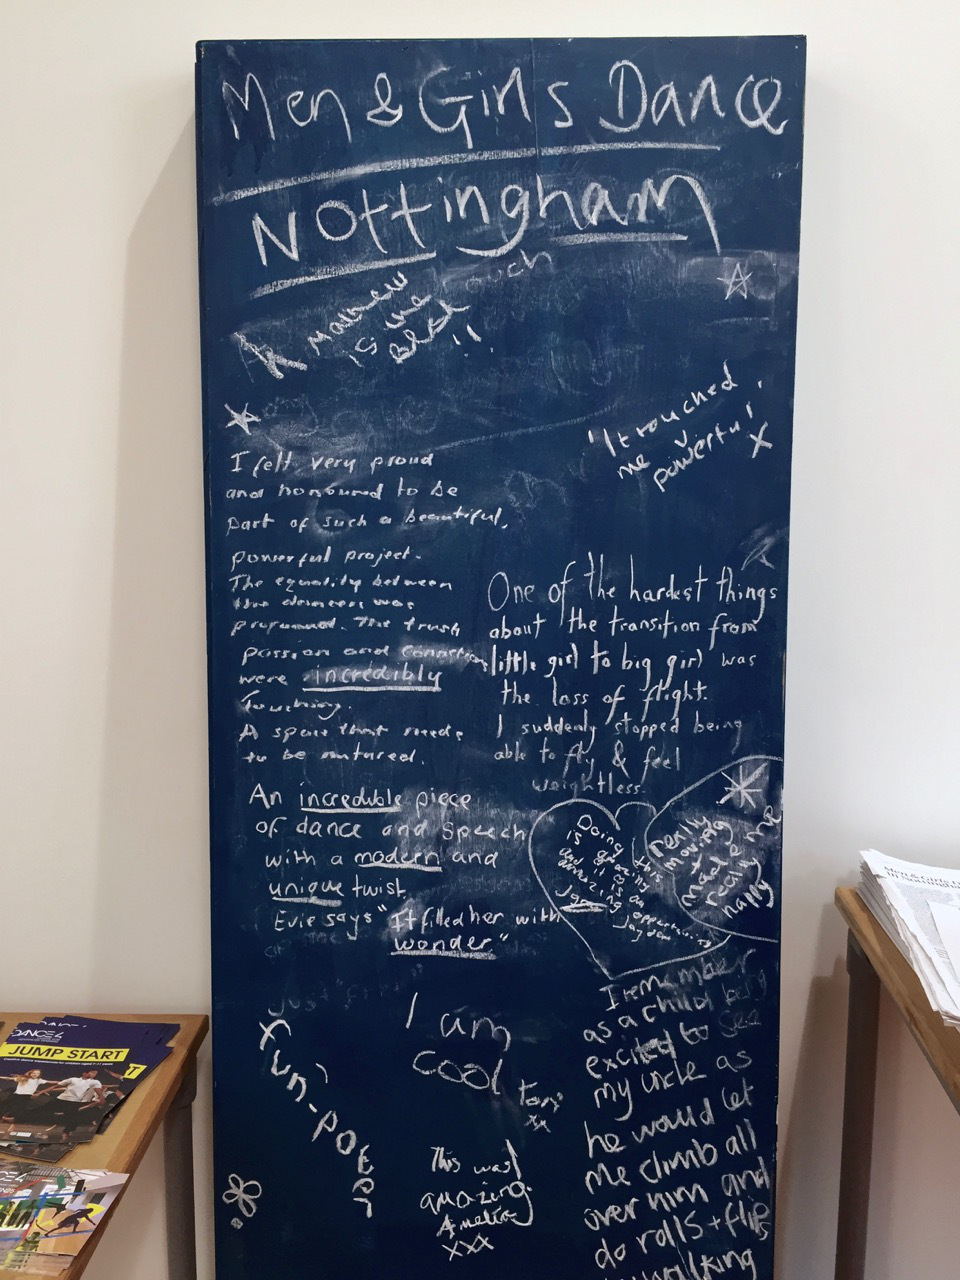 Men & Girls Dance
Nottingham
is
me
touch
"It touched
me
powerful"
X
I felt very proud
and honoured to be
part of such a beautiful,
powerful project.
The equality between
the dancers was
profound. The trust
passion and connection
were incredibly
Touching.
A space that needs
to be nutured.
One of the hardest things
about the transition from
little girl to big girl was
the loss of flight.
I suddenly stopped being
able to fly & feel
weightless.
An incredible piece
of dance and speech
with a modern and
unique twist
Evie says "It filled her with
wonder"
Doing this
is
and it is an
amazing opportunity
Jayden
really
moving
made me
really
happy
I am
cool
xx
Fun-power
This was
amazing
Amelia
xxx
I remember
as a child being
excited to see
my uncle as
he would let
me climb all
over him and
do rolls + flips
walking
DANCE4
JUMP START
Men & Girls D
in Nottingham